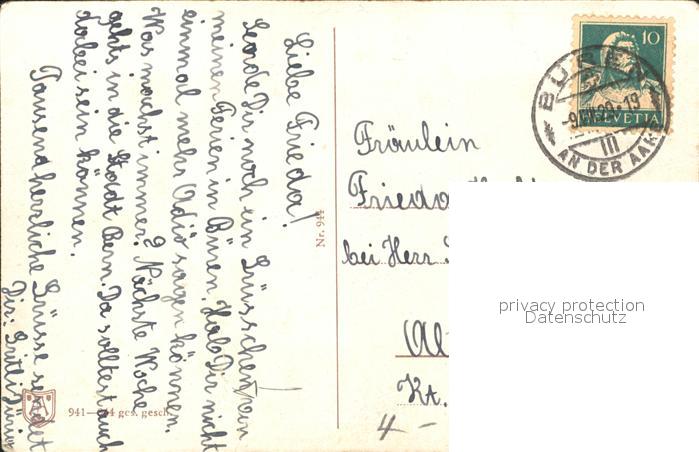 Liebe Frieda!
Sende Dir noch ein Grüsschen, von
meinen Ferien in Büren. Hab Dir nicht
einmal mehr Adiö sagen können.
Was machst immer? Nächste Woche
gehts in die Stadt Bern. Da solltest auch
dabei sein können.
Tausend herrliche Grüsse sendet
Dir: Gritli
Nr. 944
941— ges. gesch.
Fräulein
Frieda
bei Herr
Kt.
4 –
10
HELVETIA
BÜREN
AN DER AARE
III
privacy protection
Datenschutz